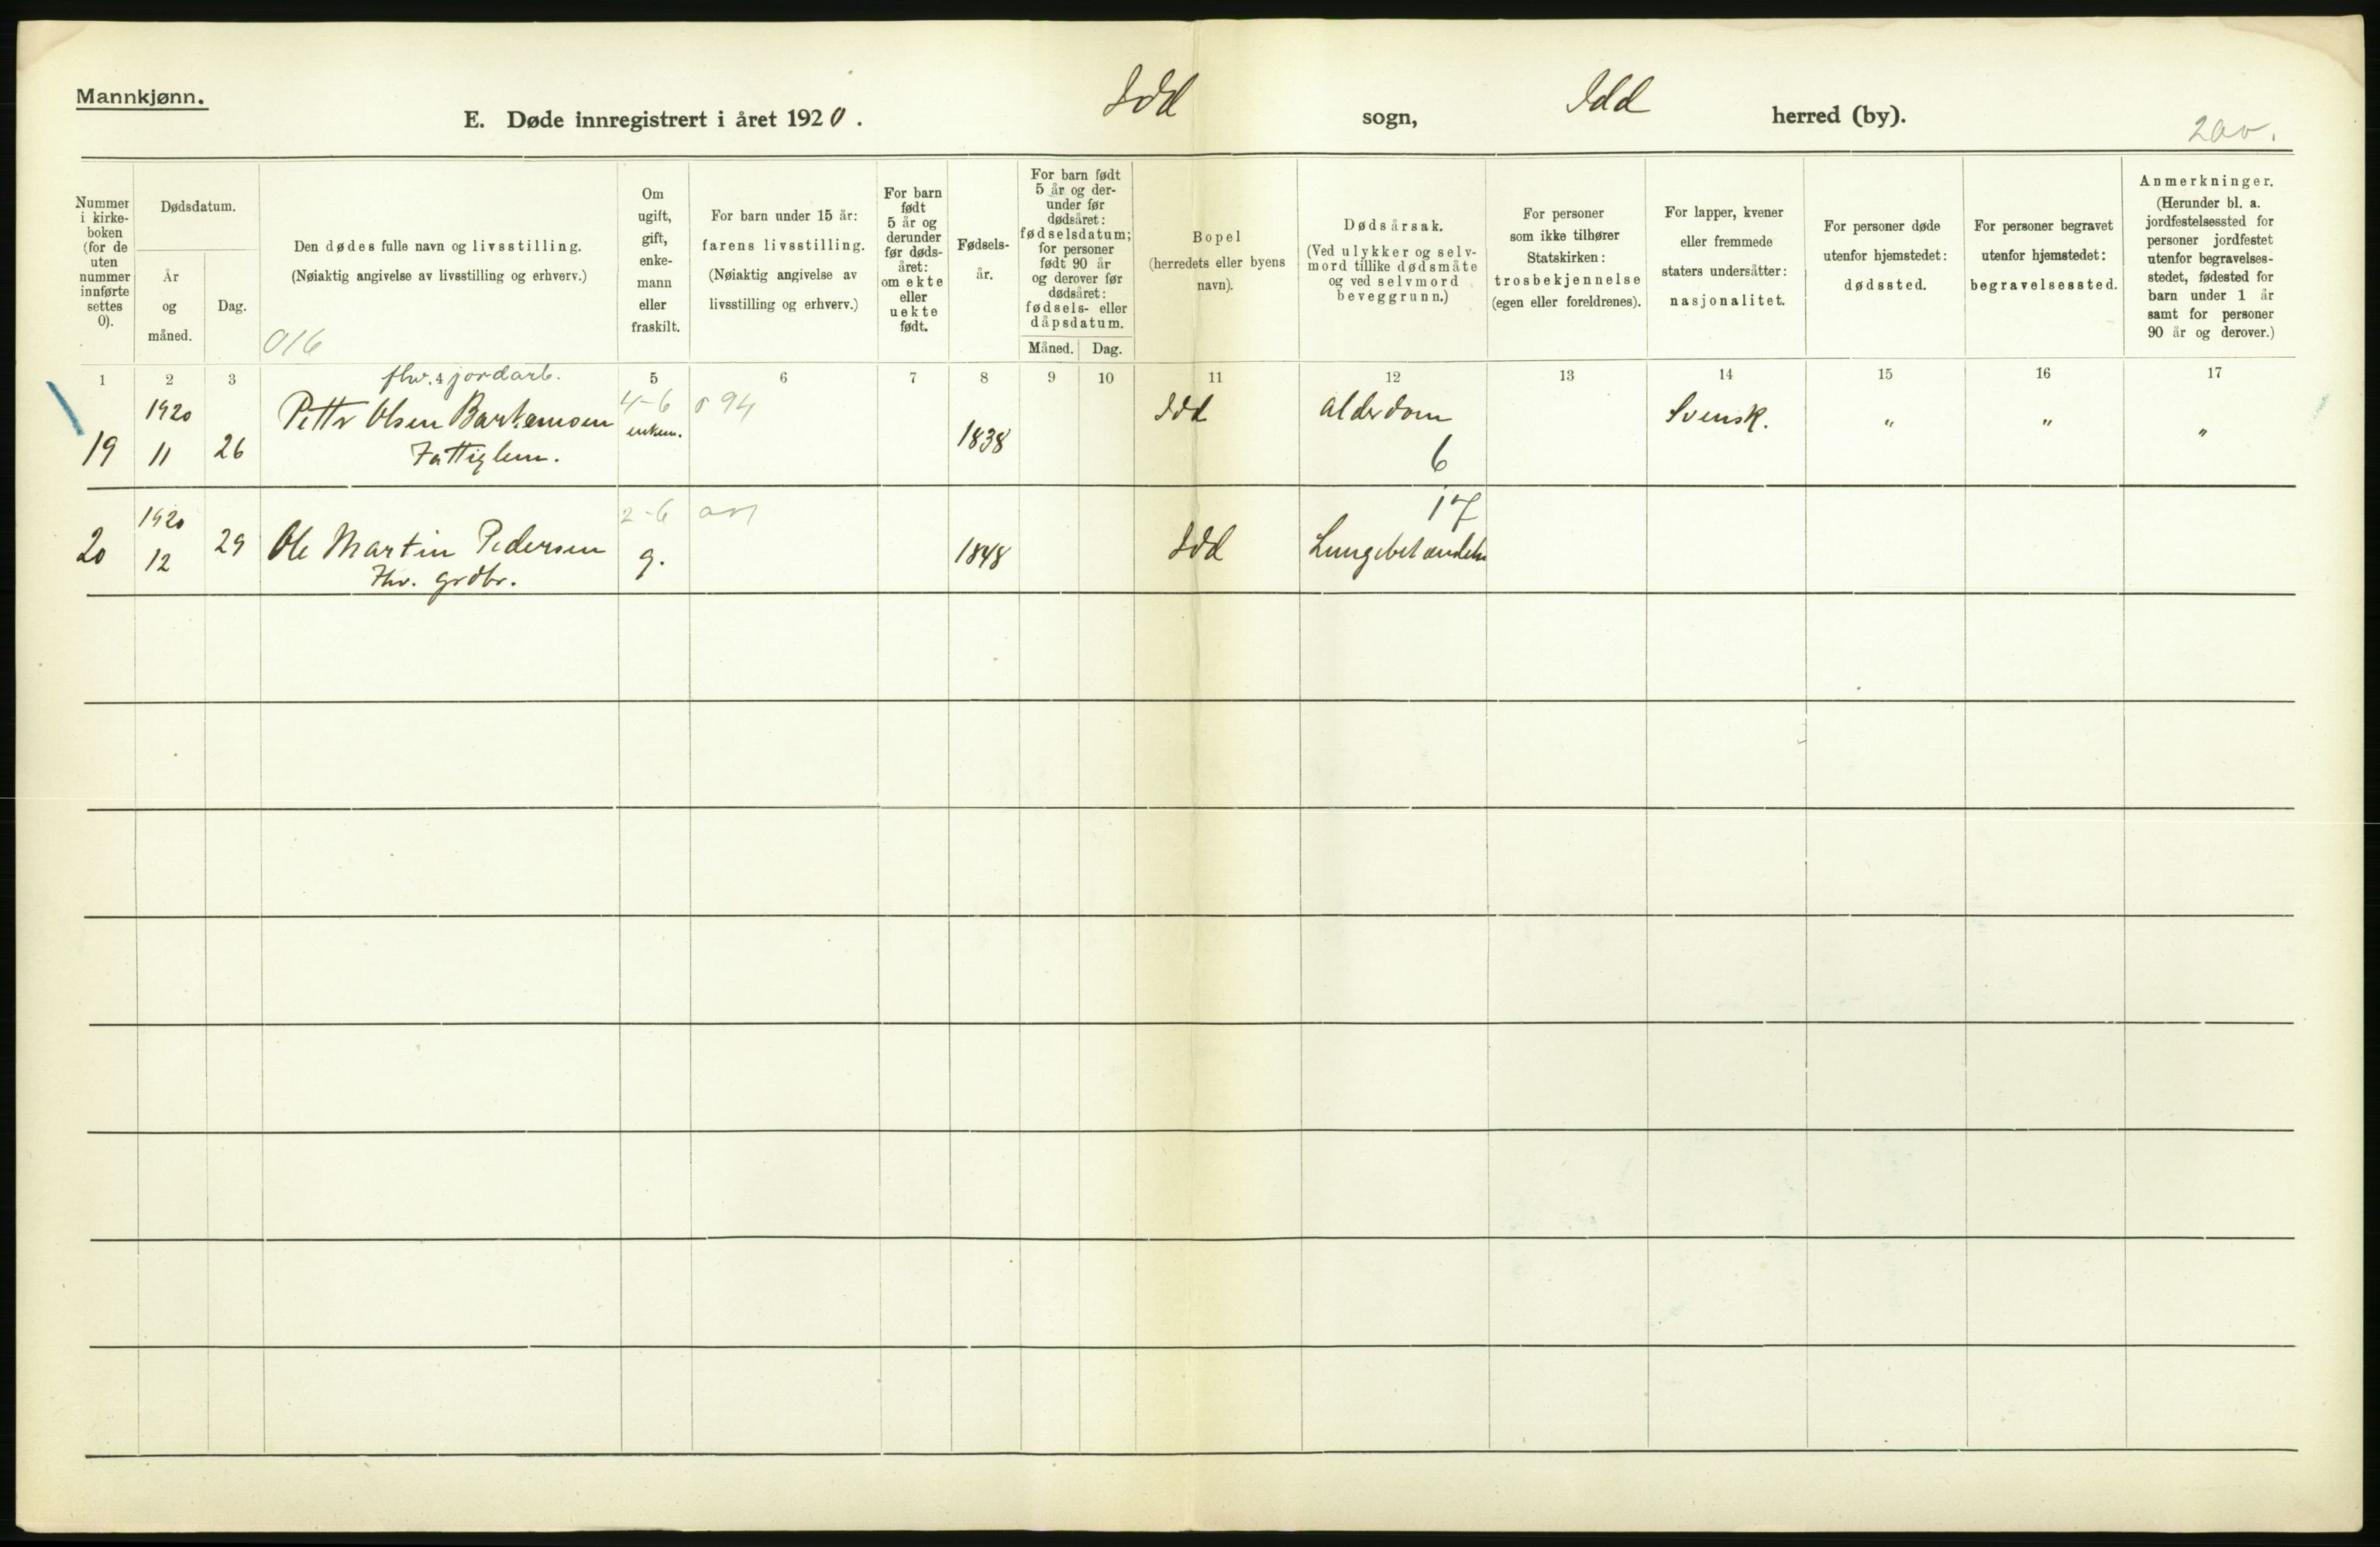 Mannkjønn.
E. Døde innregistrert i året 1920. Idd sogn, Idd herred (by).
200.
Nummer i kirke- boken (for de uten nummer innførte settes 0).
Dødsdatum.
År og måned.
Dag.
Den dødes fulle navn og livsstilling.
(Nøiaktig angivelse av livsstilling og erhverv.)
016
Om ugift, gift, enke- mann eller fraskilt.
For barn under 15 år:
farens livsstilling.
(Nøiaktig angivelse av
livsstilling og erhverv.)
For barn født 5 år og derunder før døds- året: om ekte eller uekte født.
Fødsels- år.
For barn født 5 år og der- under før dødsåret: fødselsdatum; for personer født 90 år og derover før dødsåret: fødsels- eller dåpsdatum.
Måned. Dag.
Bopel
(herredets eller byens
navn).
Dødsårsak.
(Ved ulykker og selv-
mord tillike dødsmåte
og ved selvmord
beveggrunn.)
For personer
som ikke tilhører
Statskirken:
trosbekjennelse
(egen eller foreldrenes).
For lapper, kvener
eller fremmede
staters undersåtter:
nasjonalitet.
For personer døde
utenfor hjemstedet:
dødssted.
For personer begravet
utenfor hjemstedet:
begravelsessted.
Anmerkninger.
(Herunder bl. a.
jordfestelsessted for
personer jordfestet
utenfor begravelses-
stedet, fødested for
barn under 1 år
samt for personer
90 år og derover.)
1 2 3 5 6 7 8 9 10 11 12 13 14 15 16 17
fhv. 4 jordarb.
1920 Petter Olsen 4-6 094 Idd Alderdom Svensk. " " "
19 11 26 Fattiglem. enkem. 1838 6
1920 2-6 17
20 12 29 Ole Martin Pedersen g. 1848 Idd Lungebetændelse
Fhv. grdbr.